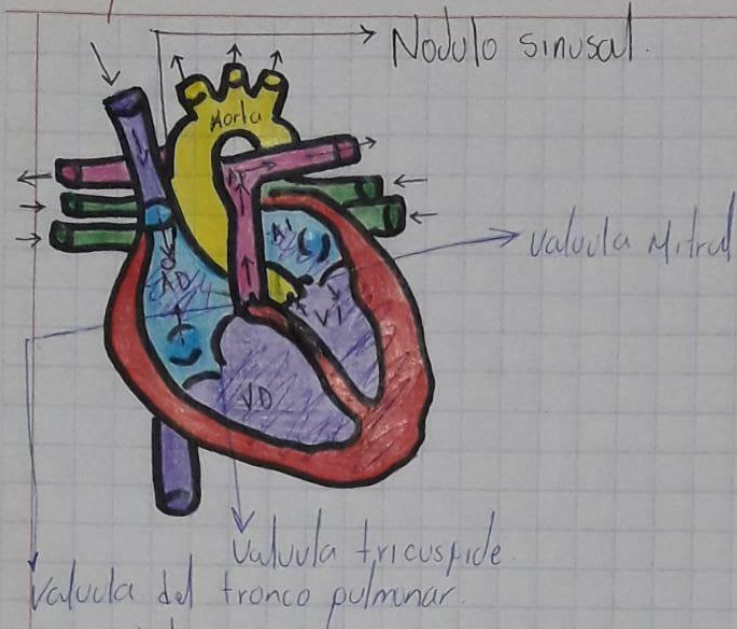 Nodulo sinusal.
Aorta
AD
VI
VD
Valvula Mitral
Valvula tricuspide.
Valvula del tronco pulmonar.